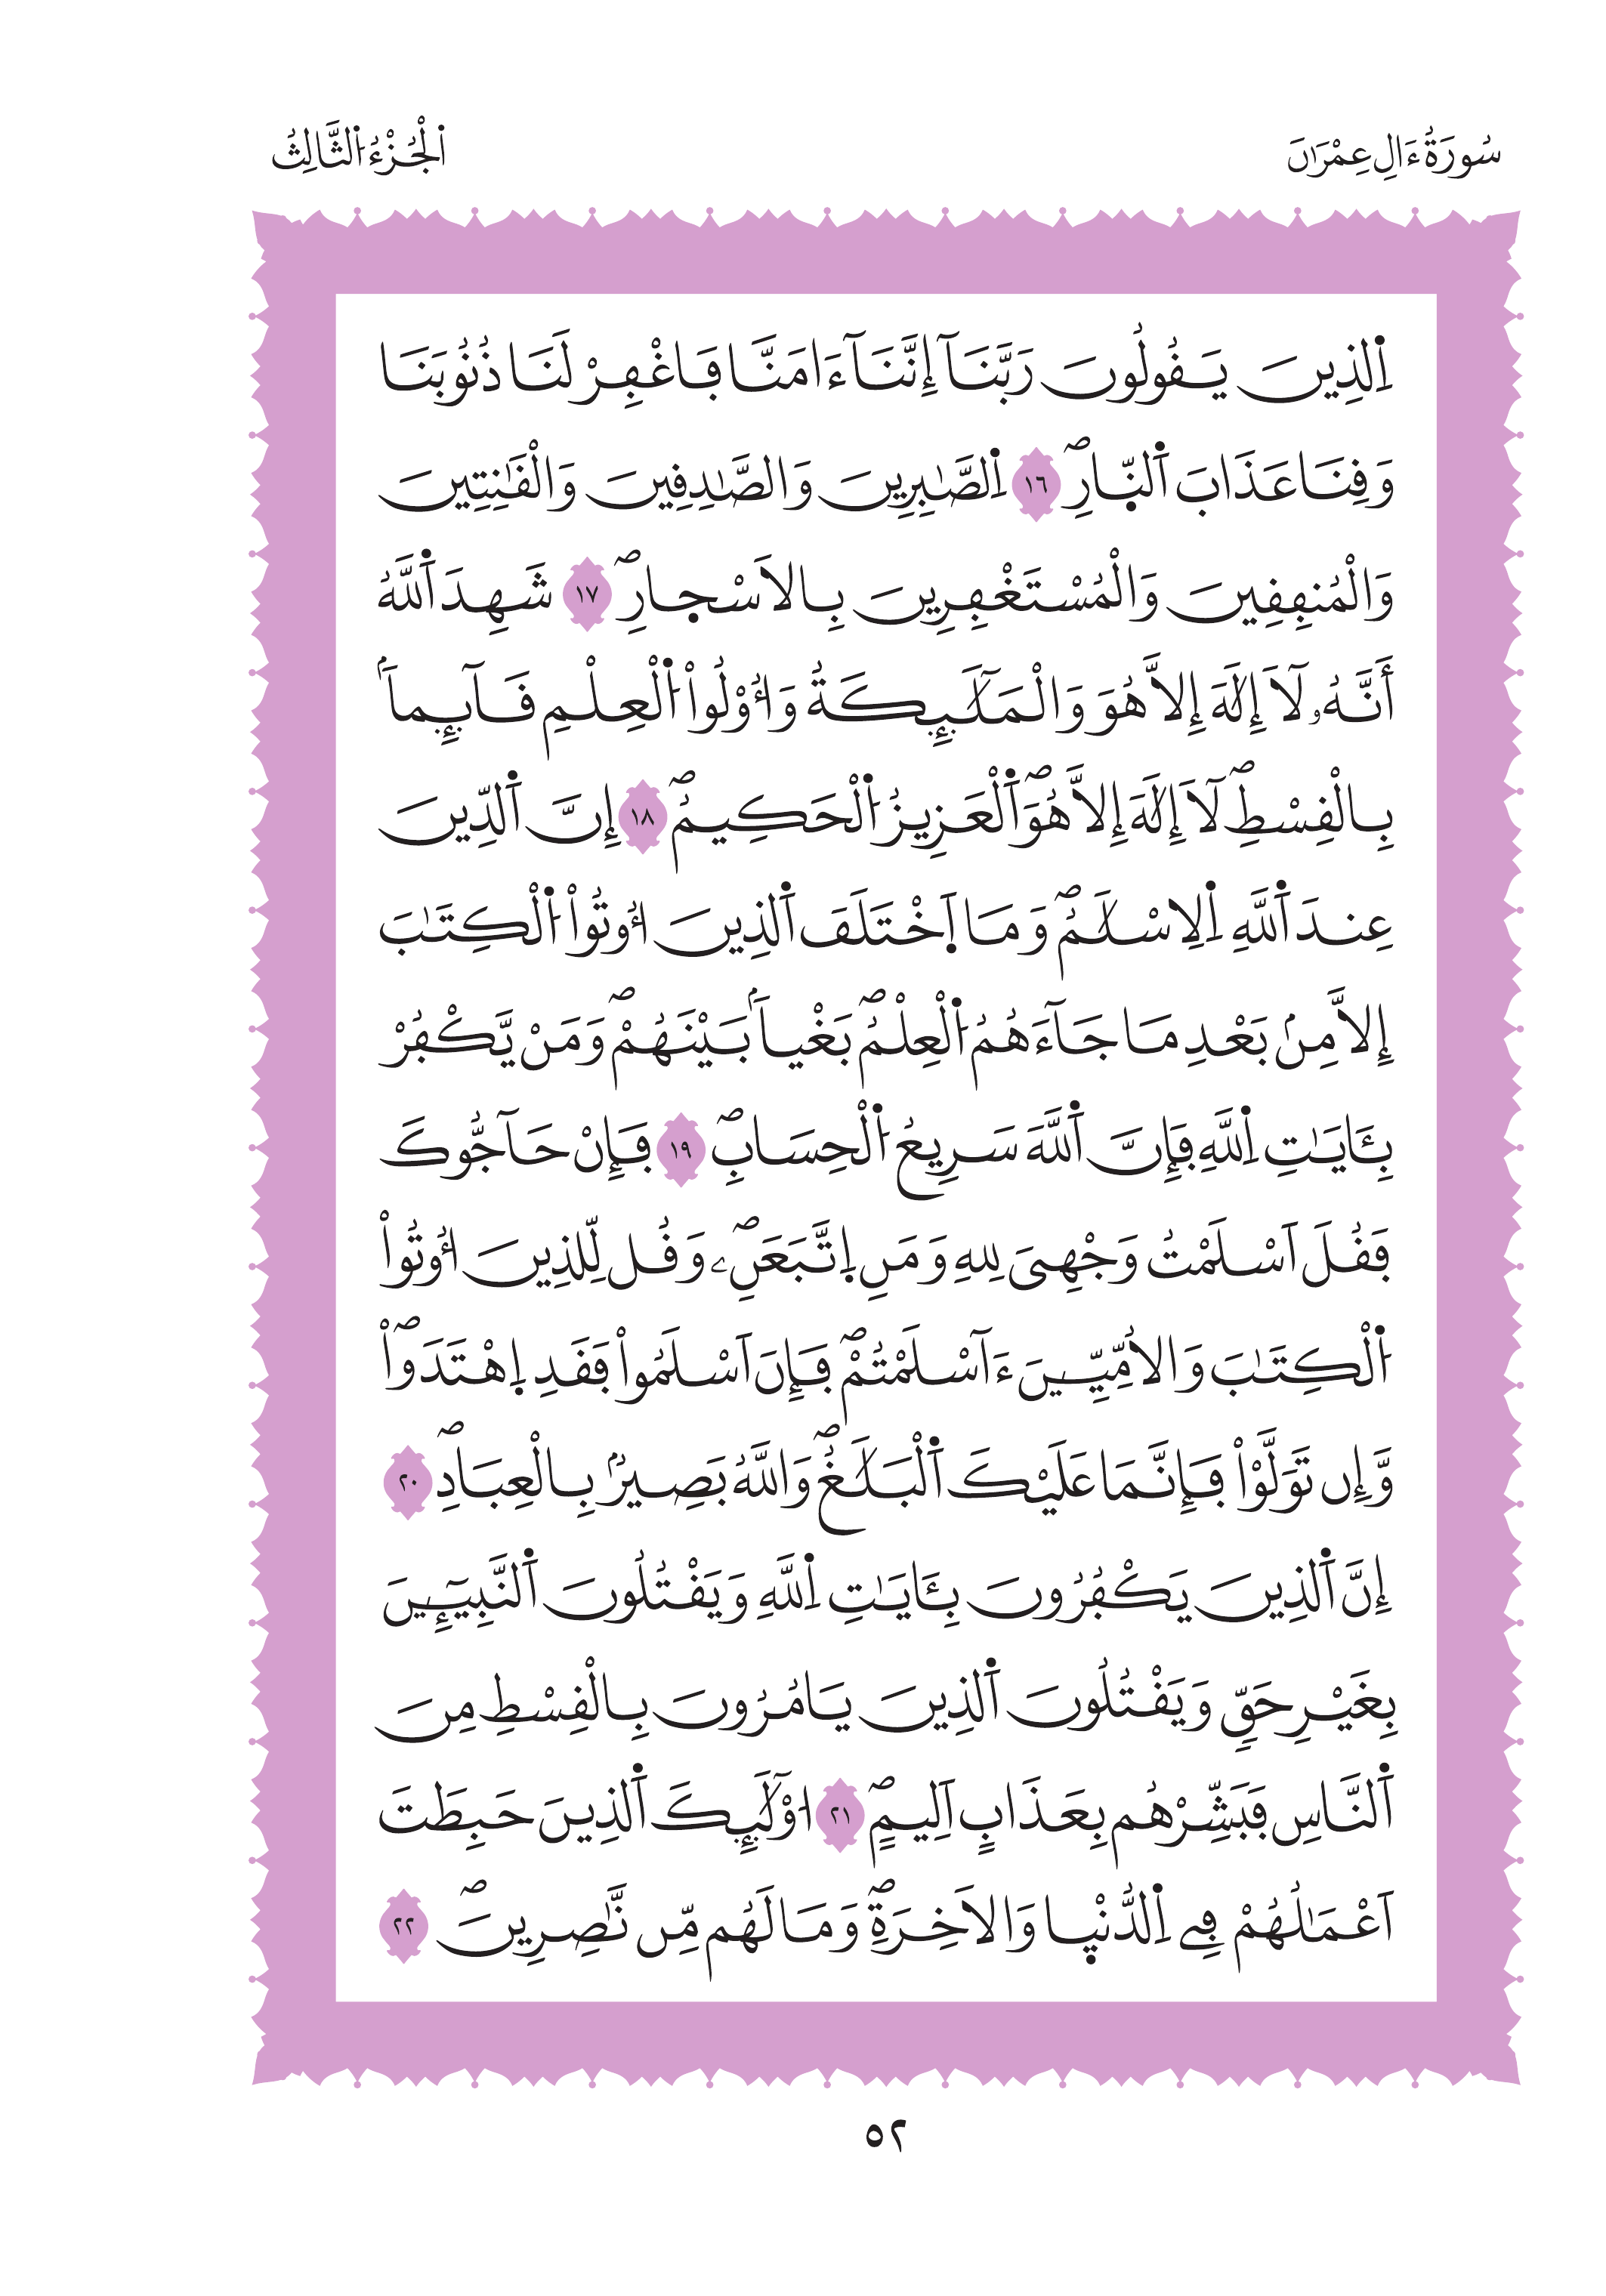 سُورَةُ ءَالِ عِمْرَٰنَ
اَلْجُزْءُ اُلثَّالِثُ
اِلذِينَ يَقُولُونَ رَبَّنَآ إِنَّنَآ ءَامَنَّا فَاغْفِرْ لَنَا ذُنُوبَنَا
وَقِنَا عَذَابَ اَلنّ۪ارِۖ ١٦ اِلصَّٰبِرِينَ وَالصَّٰدِقِينَ وَالْقَٰنِتِينَ
وَالْمُنفِقِينَ وَالْمُسْتَغْفِرِينَ بِالَاسْح۪ارِۖ ١٧ شَهِدَ اَللَّهُ
أَنَّهُۥ لَآ إِلَٰهَ إِلَّا هُوَ وَالْمَلَٰٓئِكَةُ وَأُوْلُواْ اُلْعِلْمِ قَآئِماَۢ
بِالْقِسْطِۖ لَآ إِلَٰهَ إِلَّا هُوَۖ اَلْعَزِيزُ اُلْحَكِيمُۖ ١٨ إِنَّ اَلدِّينَ
عِندَ اَللَّهِ اِلِاسْلَٰمُۖ وَمَا اَ۪خْتَلَفَ اَلذِينَ أُوتُواْ اُلْكِتَٰبَ
إِلَّا مِنۢ بَعْدِ مَا جَآءَهُمُ اُلْعِلْمُۖ بَغْياَۢ بَيْنَهُمْۖ وَمَنْ يَّكْفُرْ
بِـَٔايَٰتِ اِللَّهِ فَإِنَّ اَللَّهَ سَرِيعُ اُلْحِسَابِۖ ١٩ فَإِنْ حَآجُّوكَ
فَقُلَ اَسْلَمْتُ وَجْهِىَ لِلهِ وَمَنِ اِ۪تَّبَعَنِۦۖ وَقُل لِّلذِينَ أُوتُواْ
اُلْكِتَٰبَ وَالُامِّيِّـۧنَ ءَآسْلَمْتُمْۖ فَإِنَ اَسْلَمُواْ فَقَدِ اِ۪هْتَدَواْۖ
وَّإِن تَوَلَّوْاْ فَإِنَّمَا عَلَيْكَ اَلْبَلَٰغُۖ وَاللَّهُ بَصِيرُۢ بِالْعِبَادِۖ ٢٠
إِنَّ اَلذِينَ يَكْفُرُونَ بِـَٔايَٰتِ اِللَّهِ وَيَقْتُلُونَ اَلنَّبِيٓـِٕينَ
بِغَيْرِ حَقٍّ وَيَقْتُلُونَ اَلذِينَ يَامُرُونَ بِالْقِسْطِ مِنَ
اَلنَّاسِ فَبَشِّرْهُم بِعَذَابٍ اَلِيمٍۖ ٢١ اُوْلَٰٓئِكَ اَلذِينَ حَبِطَتَ
اَعْمَٰلُهُمْ فِے اِلدُّنْي۪ا وَالَاخِرَةِۖ وَمَا لَهُم مِّن نَّٰصِرِينَۖ ٢٢
٥٢